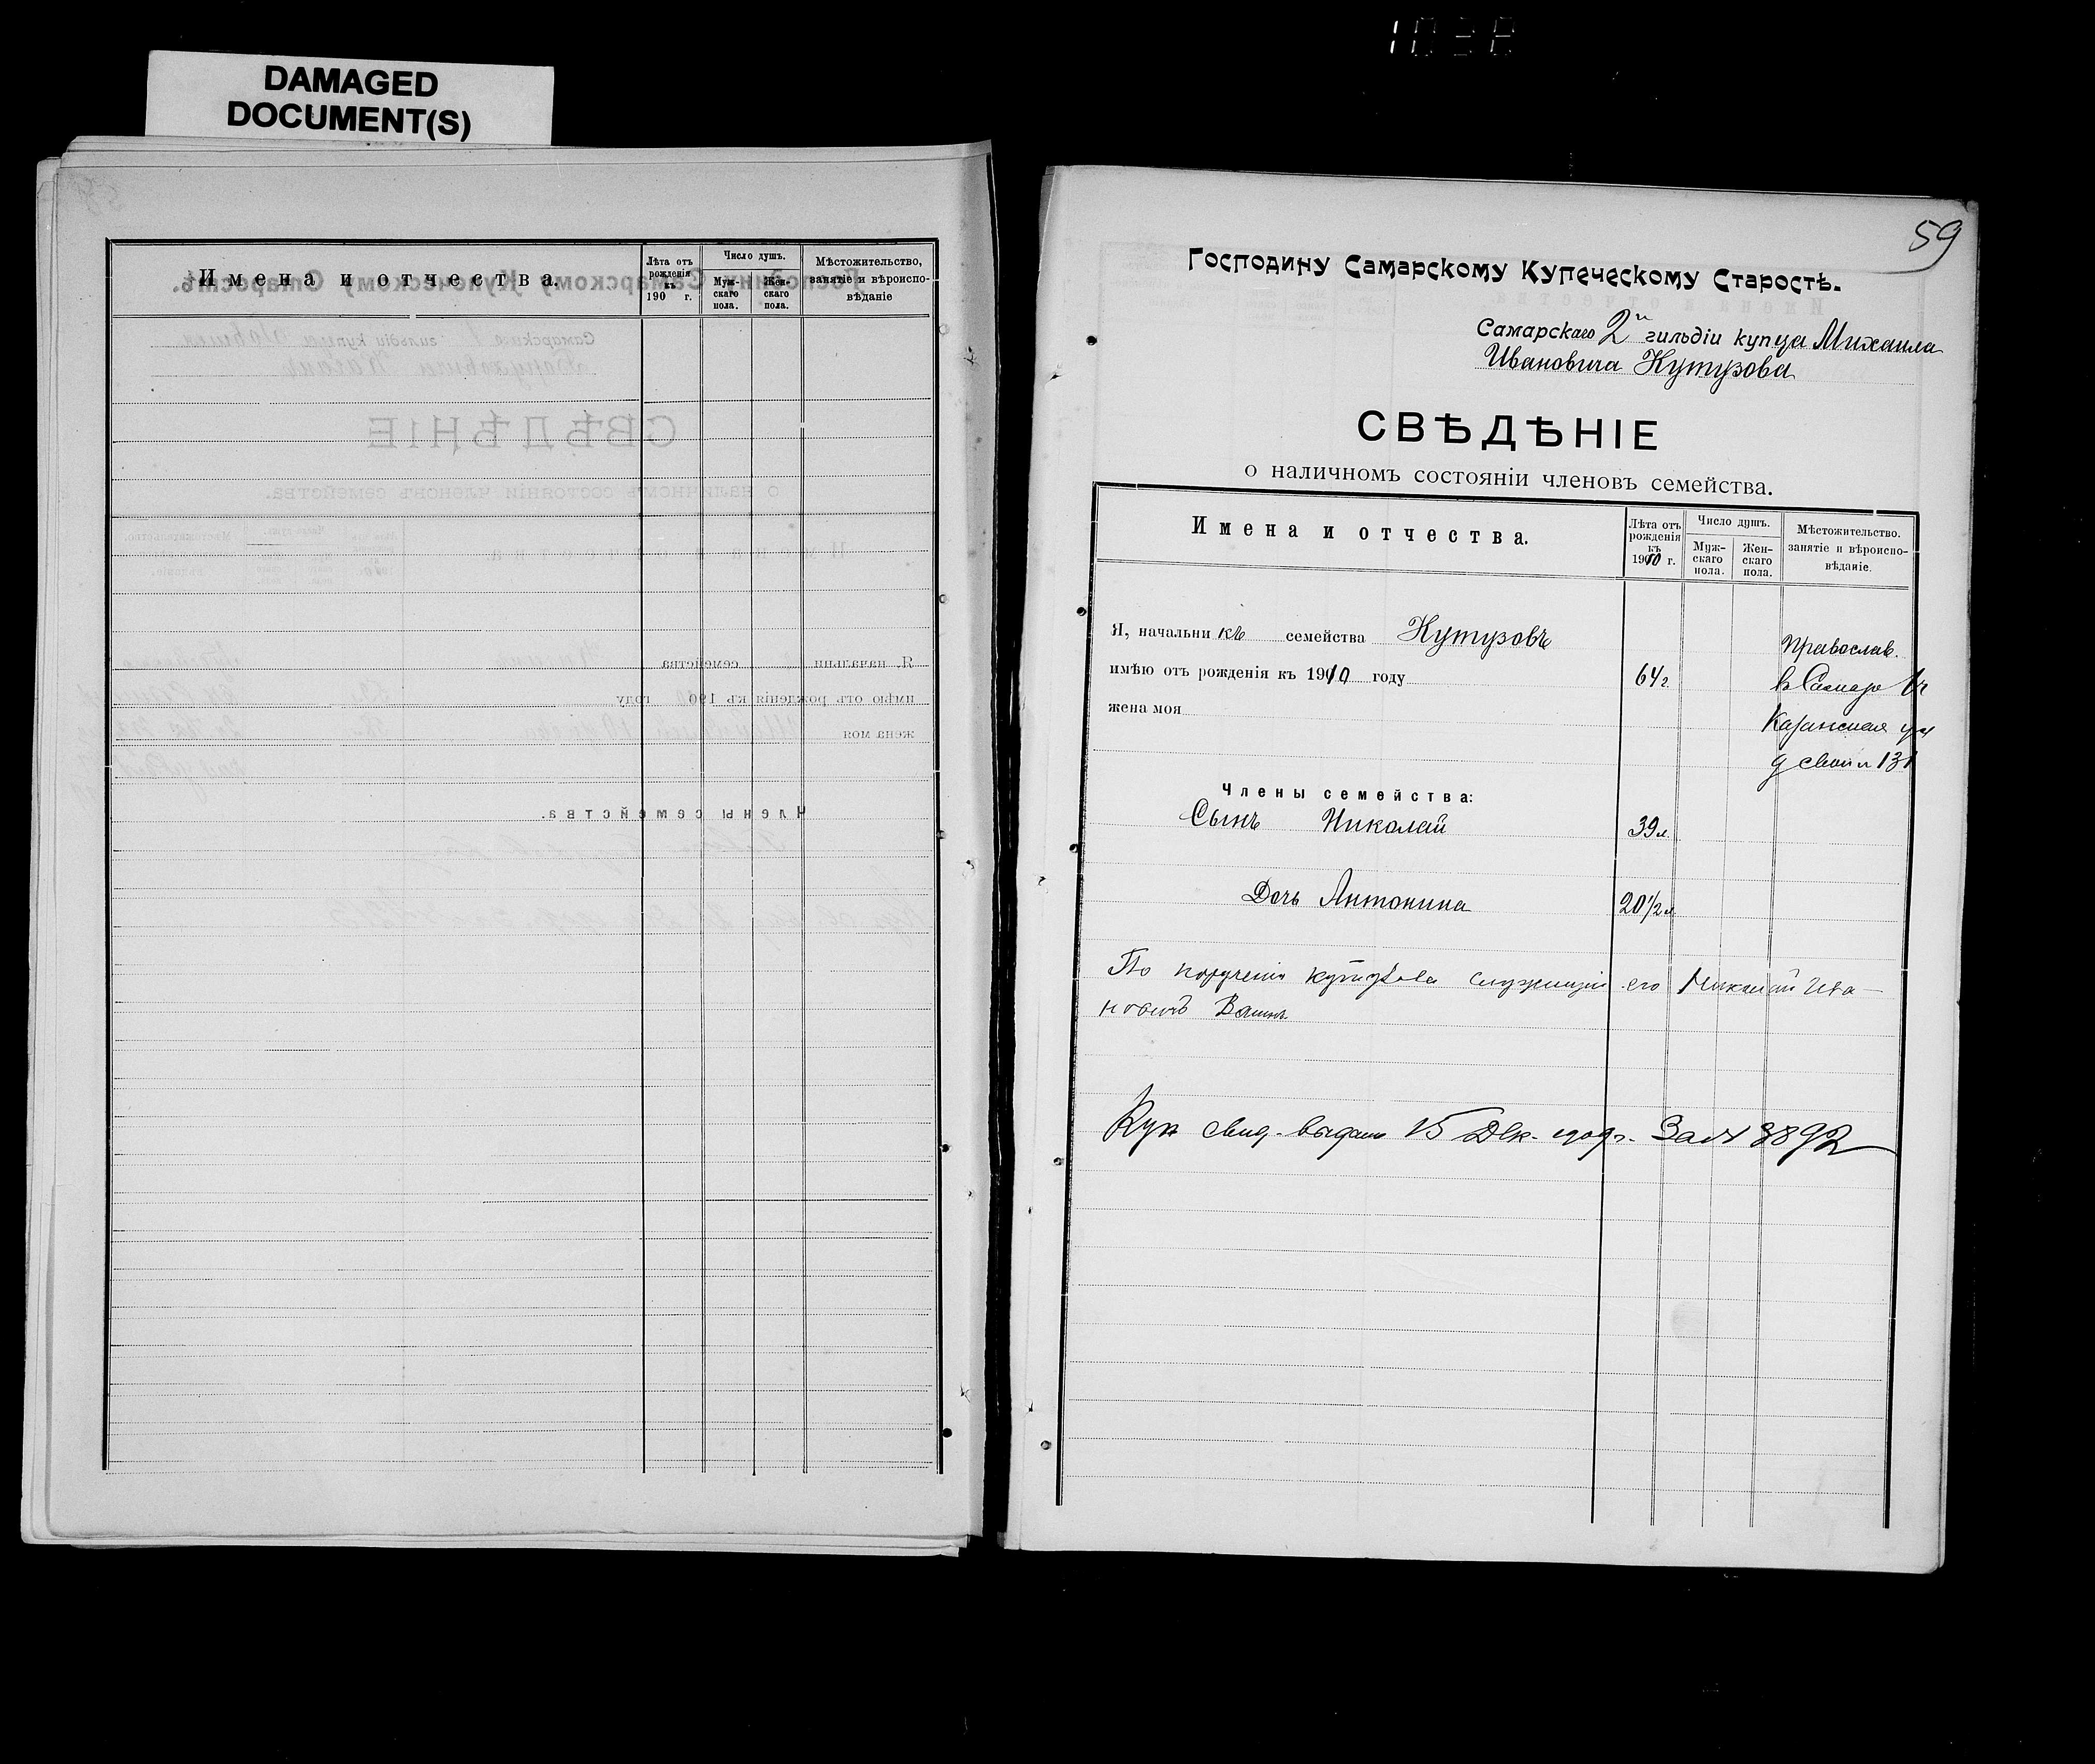 DAMAGED
DOCUMENT(S)
Имена и отчества.
Лѣта отъ рожденія къ 190 г.
Число душъ.
Мужскаго пола.
Женскаго пола.
Мѣстожительство, занятіе и вѣроисповѣданіе
59
Господину Самарскому Купеческому Старостѣ.
Самарскаго 2й гильдіи купца Михаила
Ивановича Кутузова
СВѢДѢНІЕ
о наличномъ состояніи членовъ семейства.
Имена и отчества.
Лѣта отъ
рожденія
къ
1910 г.
Число душъ.
Муж-
скаго
пола.
Жен-
скаго
пола.
Мѣстожительство.
занятіе и вѣроиспо-
вѣданіе.
Я, начальникъ семейства Кутузовъ
Православ.
имѣю отъ рожденія къ 1910 году 64 г.
в Самаре
жена моя
Казанская ул
д свой 131
Члены семейства:
Сынъ Николай 39 л.
Дочь Антонина 20 1/2 л
По порученію Кутузова служащій его Николай Ива-
новичъ
Куп свид. выдано 15 Дек. 1909 г. За № 8892